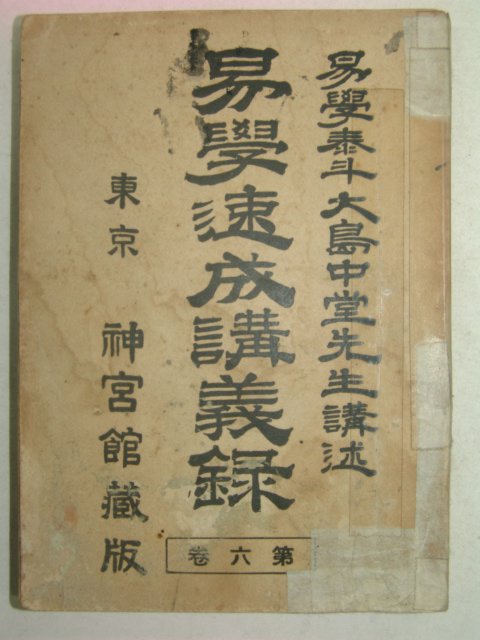 易學泰斗大島中堂先生講述
易學速成講義録
東京 神宮館藏版
第六卷